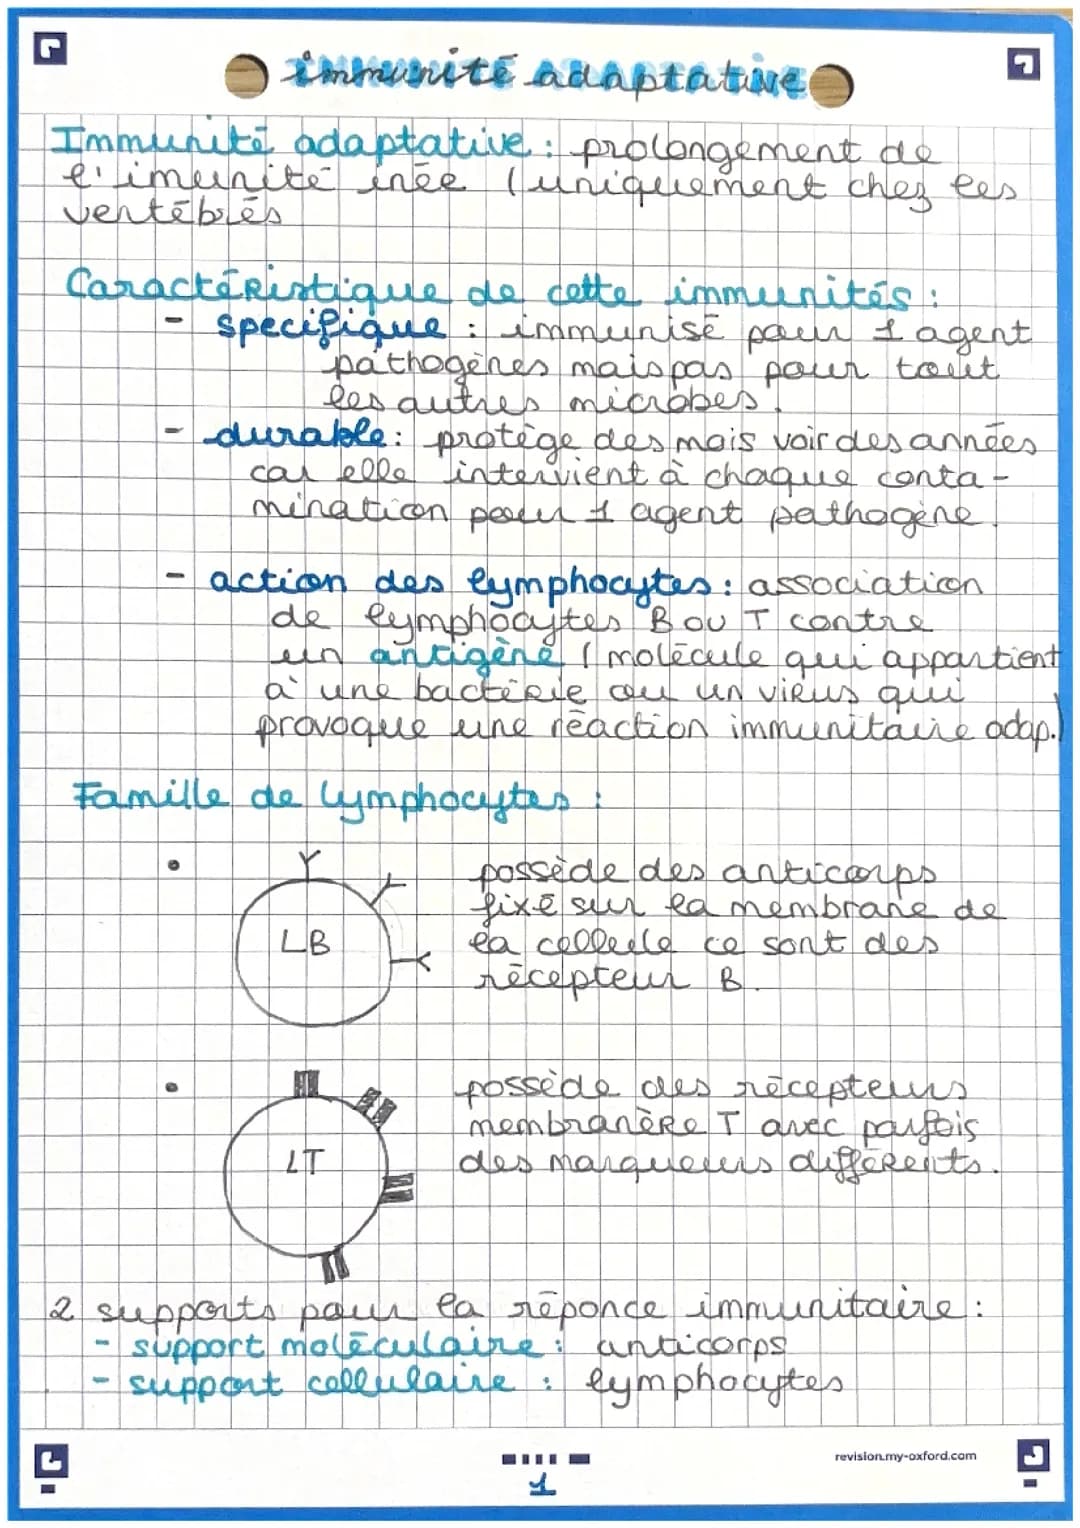 immunité adaptative
Immunité adaptative : prolongement de
l'imunité inée (uniquement chez les
vertébrés
Caractéristique de cette immunités :
- specifique : immunisé pour 1 agent
pathogènes mais pas pour tout
les autres microbes.
- durable : protège des mois voir des années
car elle intervient à chaque conta-
mination pour 1 agent pathogène.
- action des lymphocytes : association
de lymphocytes B ou T contre
un antigène (molécule qui appartient
à une bactérie ou un virus qui
provoque une réaction immunitaire adap.)
Famille de lymphocytes :
• LB possède des anticorps
fixé sur la membrane de
la cellule ce sont des
récepteur B.
• LT possède des récepteurs
membranère T avec parfois
des marqueurs différents.
2 supports pour la réponce immunitaire :
- support moléculaire : anticorps
- support cellulaire : lymphocytes
revision.my-oxford.com
1